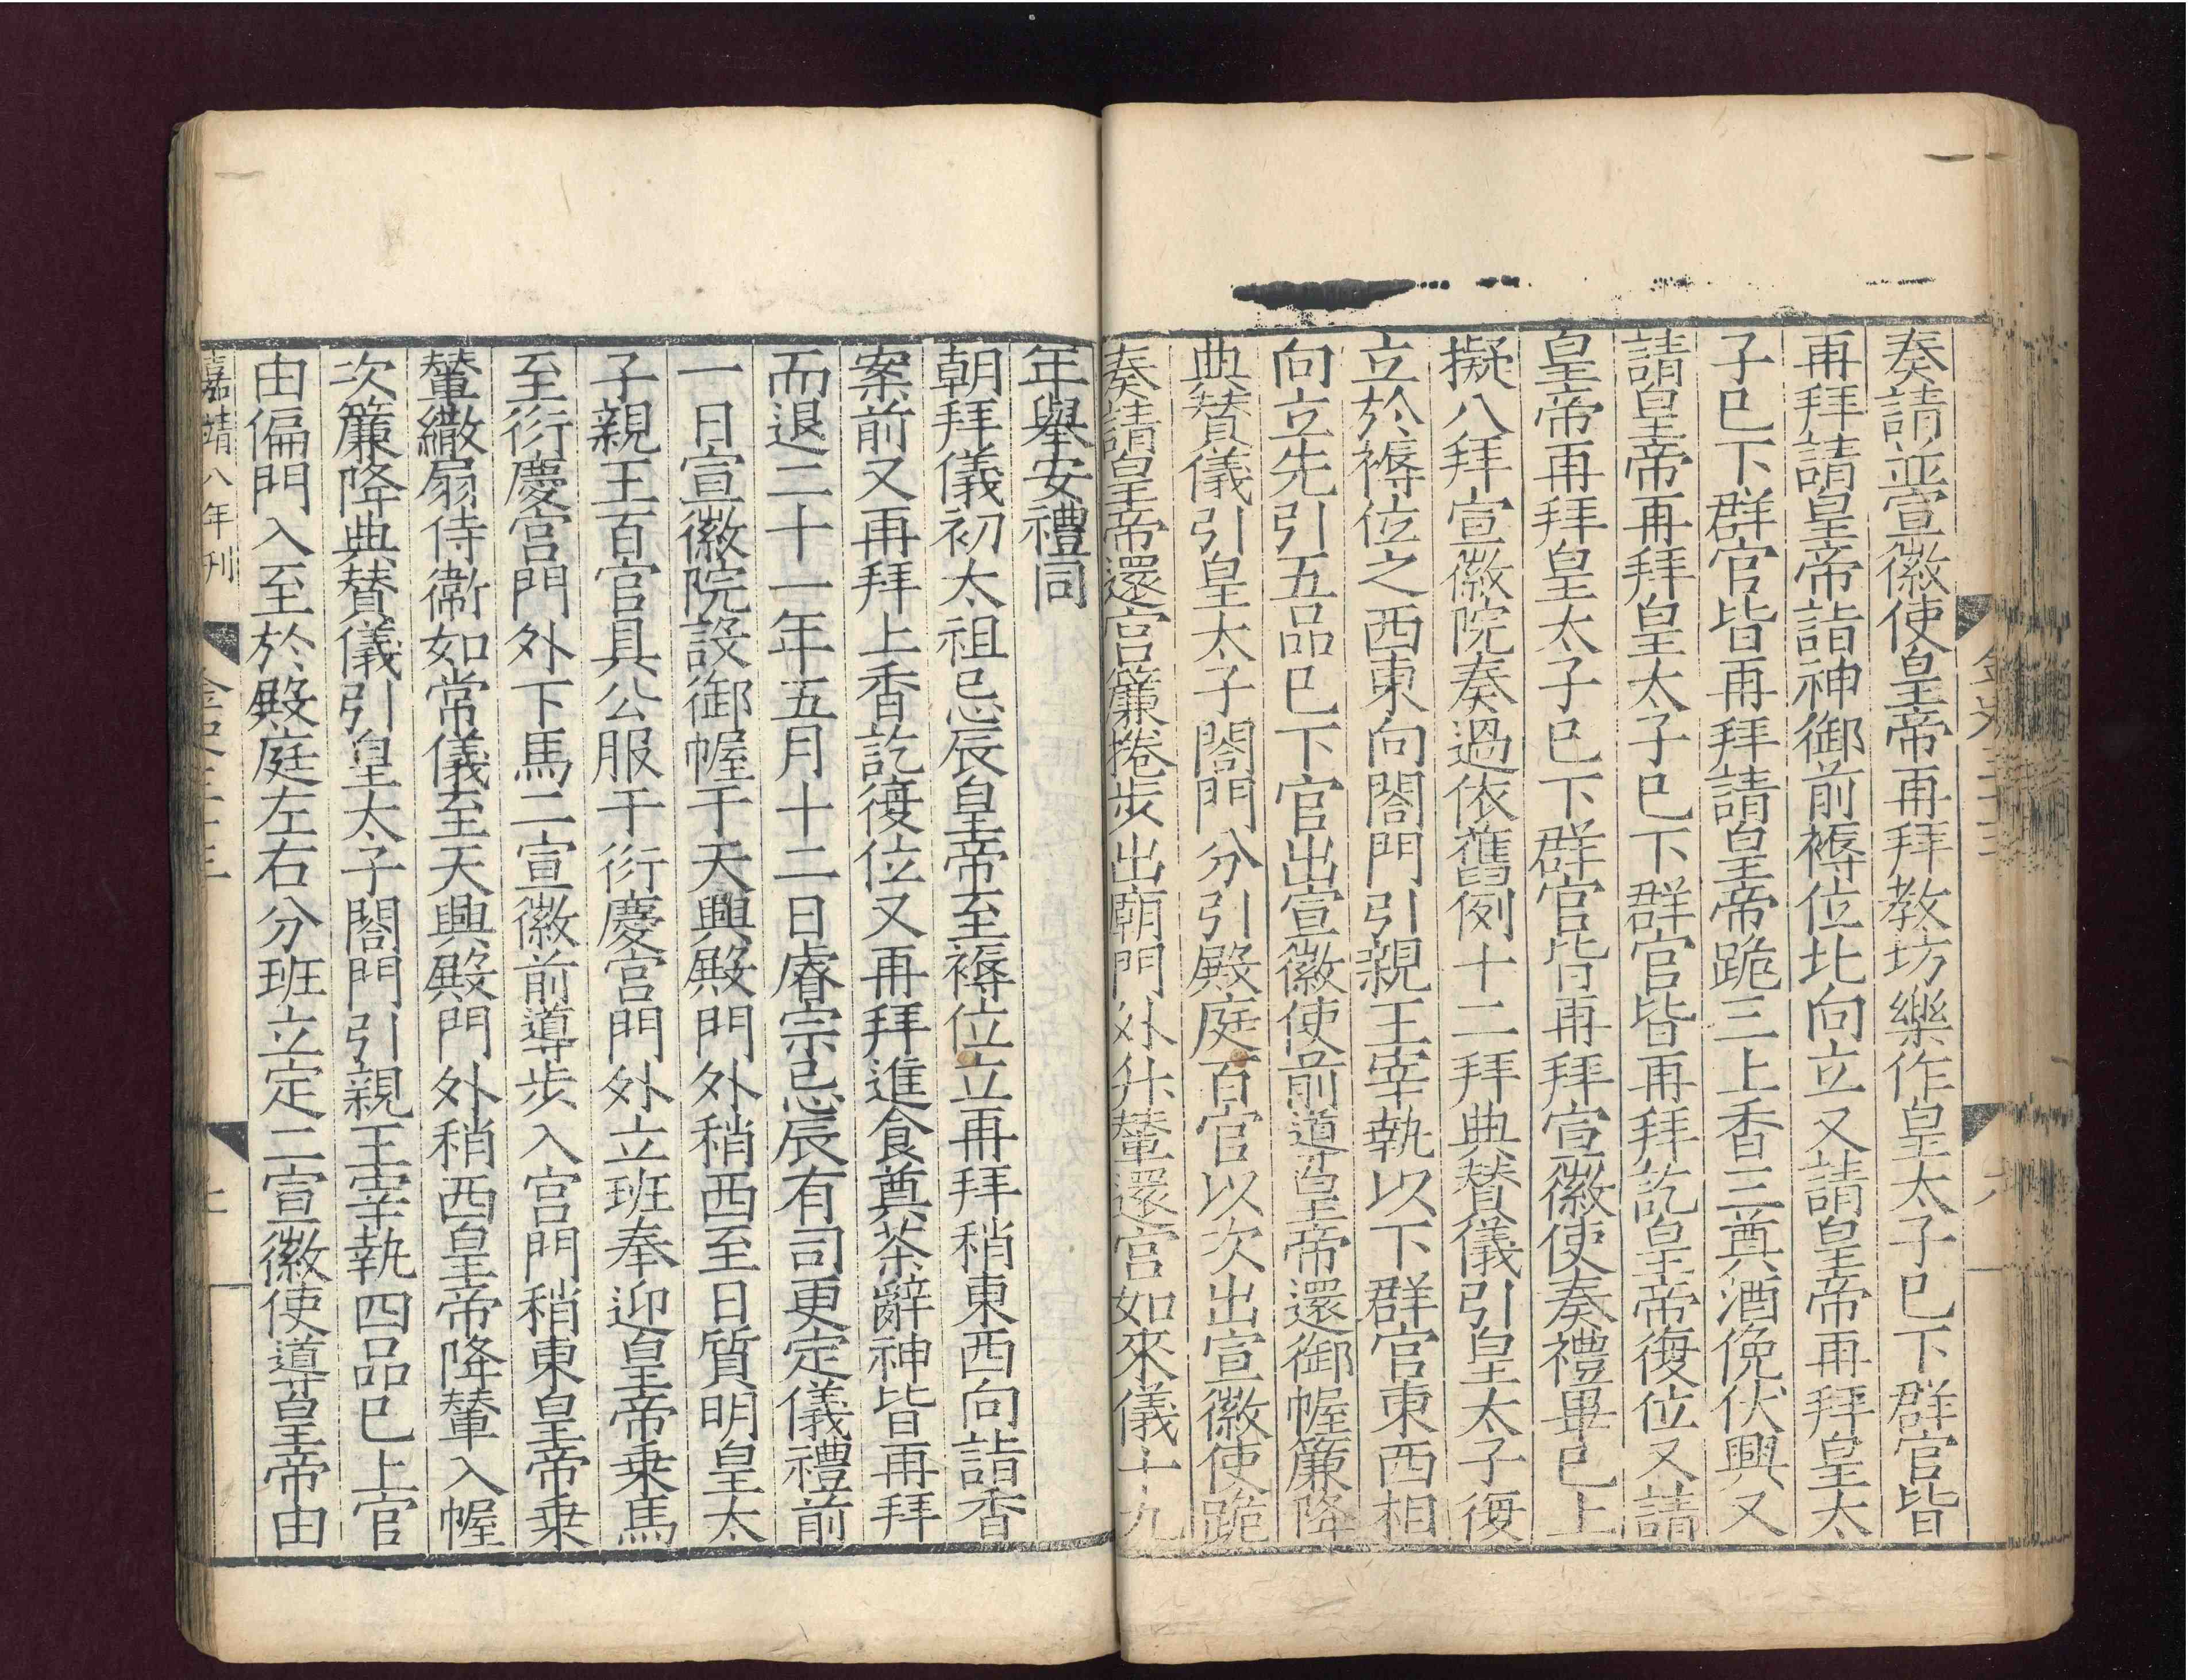 奏請並宣徽使皇帝再拜教坊樂作皇太子已下群官皆
再拜請皇帝詣神御前褥位北向立又請皇帝再拜皇太
子已下群官皆再拜請皇帝跪三上香三奠酒俛伏興又
請皇帝再拜皇太子已下群官皆再拜訖皇帝復位又請
皇帝再拜皇太子已下群官皆再拜宣徽使奏禮畢已上
擬八拜宣徽院奏過依舊例十二拜典賛儀引皇太子復
立於褥位之西東向閤門引親王宰執以下群官東西相
向立先引五品已下官出宣徽使前導皇帝還御幄簾降
典賛儀引皇太子閤門分引殿庭百官以次出宣徽使跪
奏請皇帝還宮簾捲步出廟門外升輦還宮如來儀十九
年舉安禮同
朝拜儀初太祖忌辰皇帝至褥位立再拜稍東西向詣香
案前又再拜上香訖復位又再拜進食奠茶辭神皆再拜
而退二十一年五月十二日睿宗忌辰有司更定儀禮前
一日宣徽院設御幄于天興殿門外稍西至日質明皇太
子親王百官具公服于衍慶宮門外立班奉迎皇帝乗馬
至衍慶宮門外下馬二宣徽前導步入宮門稍東皇帝乗
輦繖扇侍衛如常儀至天興殿門外稍西皇帝降輦入幄
次簾降典賛儀引皇太子閤門引親王宰執四品已上官
由偏門入至於殿庭左右分班立定二宣徽使導皇帝由
嘉靖八年刊